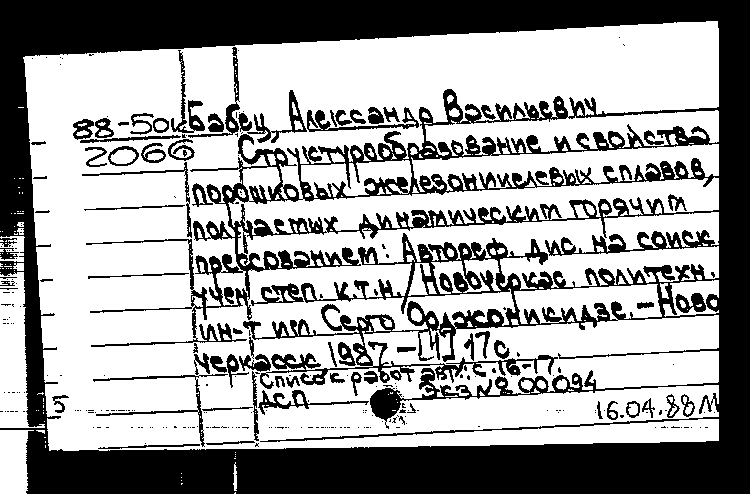 88-50к Бабец, Александр Васильевич.
2066 Структурообразование и свойства
порошковых железоникелевых сплавов,
получаемых динамическим горячим
прессованием: Автореф. дис. на соиск
учен. степ. к.т.н. / Новочеркас. политехн.
ин-т им. Серго Орджоникидзе. – Ново
черкасск 1987 – [1] 17 с.
Список работ авт.: с. 16-17.
ДСП Экз № 200094
5
16.04.88М